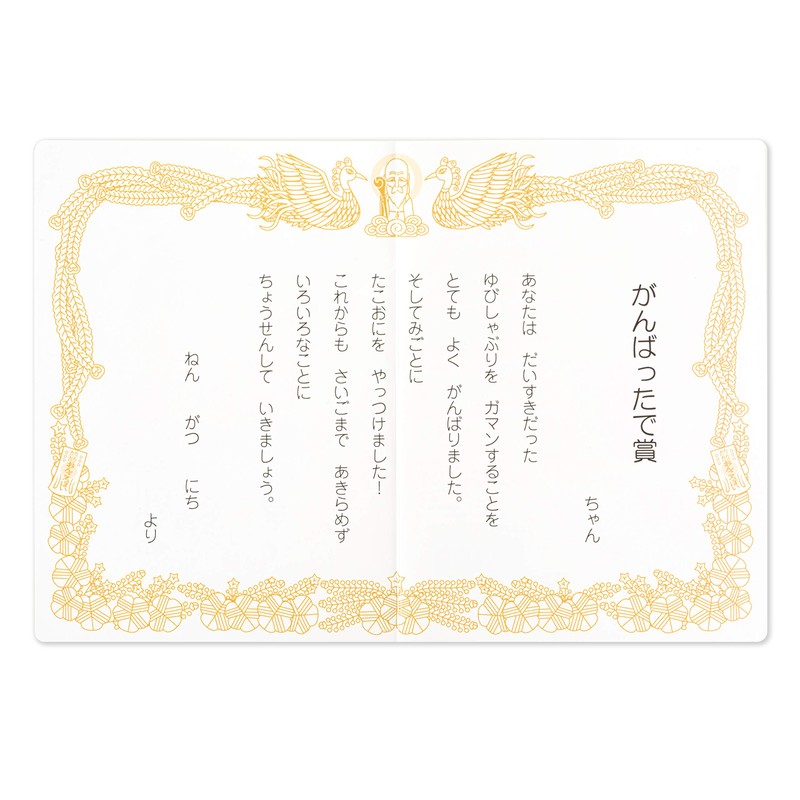 がんばったで賞
ちゃん
あなたは　だいすきだった
ゆびしゃぶりを　ガマンすることを
とても　よく　がんばりました。
そしてみごとに
たこおにを　やっつけました！
これからも　さいごまで　あきらめず
いろいろなことに
ちょうせんして　いきましょう。
ねん　がつ　にち
より